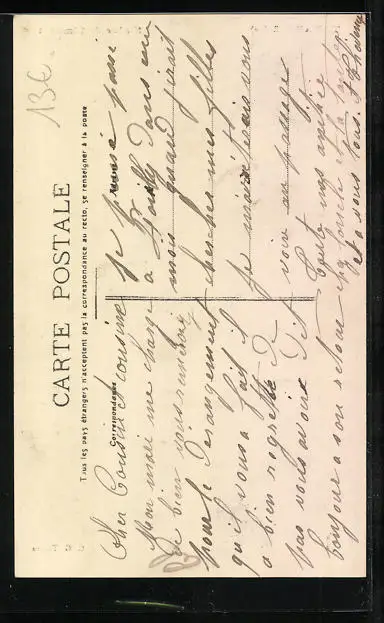 13€
CARTE POSTALE
Tous les pays étrangers n'acceptent pas la correspondance au recto, se renseigner à la poste
Correspondance
Cher Cousin et Cousine
Mon mari me charge
de bien vous remercier
pour le derangement
qu'il vous a fait il
a bien regretté de
pas vous avoir dit
bonjour a son retour
Je pense passé
a Pouilly dans un
mois quand j'irait
chercher mes filles
je m'arrêterais vous
voir au passage
Toute ma
et a vous tous